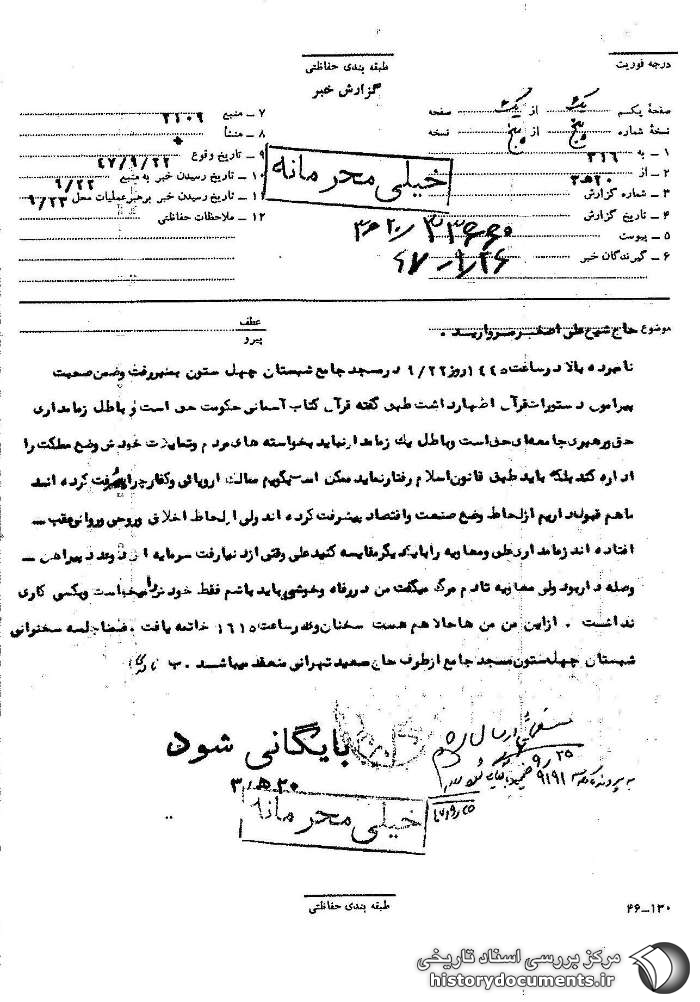 درجه فوریت
طبقه بندی حفاظتی
گزارش خبر
صفحهٔ یکم یک از یک صفحه
نسخهٔ شماره پنج از پنج نسخه
۱ ـ به ۳۱۶
۲ ـ از ۲۰ ه ۳
۳ ـ شماره گزارش
۴ ـ تاریخ گزارش
۵ ـ پیوست
۶ ـ گیرندگان خبر
۷ ـ منبع ۲۱۰۹
۸ ـ منشأ
۹ ـ تاریخ وقوع ۴۷/۹/۲۲
۱۰ ـ تاریخ رسیدن خبر به منبع ۹/۲۲
۱۱ ـ تاریخ رسیدن خبر برهبرعملیات محل ۹/۲۳
۱۲ ـ ملاحظات حفاظتی
خیلی محرمانه
موضوع حاج شیخ علی اصغر مروارید .
عطف
پیرو
نامبرده بالا در ساعت ۱۴۴۵ روز ۹/۲۲ در مسجد جامع شبستان چهل ستون بمنبر رفت و ضمن صحبت
پیرامون دستورات قرآن اظهار داشت طبق گفته قرآن کتاب آسمانی حکومت حق است و باطل زمامداری
حق و رهبری جامعه ای حق است و باطل یک زمامدار نباید بخواسته های مردم و تمایلات خودش وضع مملکت را
اداره کند بلکه باید طبق قانون اسلام رفتار نماید ممکن است بگویم ممالک اروپائی و کفار چرا پیشرفت کرده اند
ما هم قبول داریم از لحاظ وضع صنعت و اقتصاد پیشرفت کرده اند ولی از لحاظ اخلاق و روحی و روانی عقب ـ
افتاده اند زمامداری علی و معاویه را با یکدیگر مقایسه کنید علی وقتی از دنیا رفت سرمایه او دو عدد پیراهن ـ
وصله دار بود ولی معاویه تا دم مرگ میگفت من در رفاه و خوشی باید باشم فقط خودش را میخواست و بکسی کاری
نداشت . از این من من ها حالا هم هست سخنان وی در ساعت ۱۶۱۵ خاتمه یافت . ضمنا جلسه سخنرانی
شبستان چهل ستون مسجد جامع از طرف حاج سعید تهرانی منعقد میباشد . ب
بایگانی شود
۲۰ ه ۳
۹/۲۵
۹۱۹۱
خیلی محرمانه
طبقه بندی حفاظتی
۴۶-۱۳۰
مرکز بررسی اسناد تاریخی
historydocuments.ir